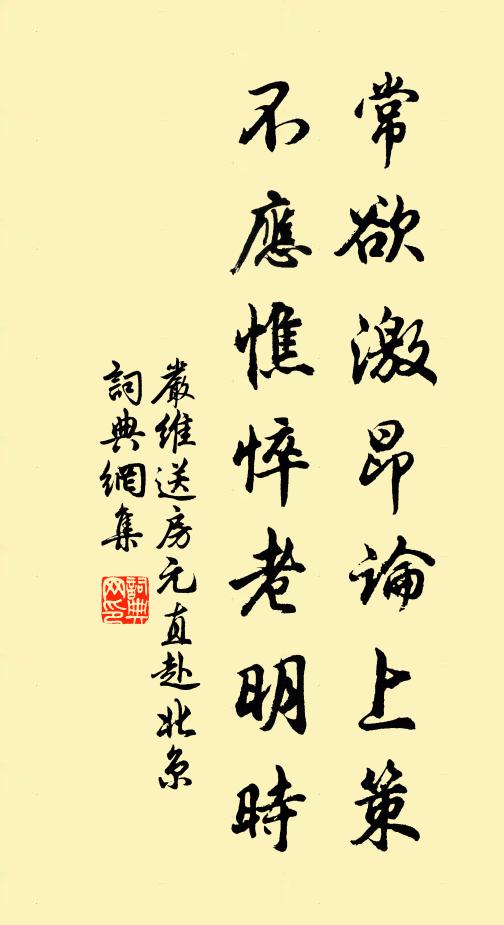 常欲激昂論上策
不應憔悴老明時
嚴維送房元直赴北京
詞典網集
詞典
网印